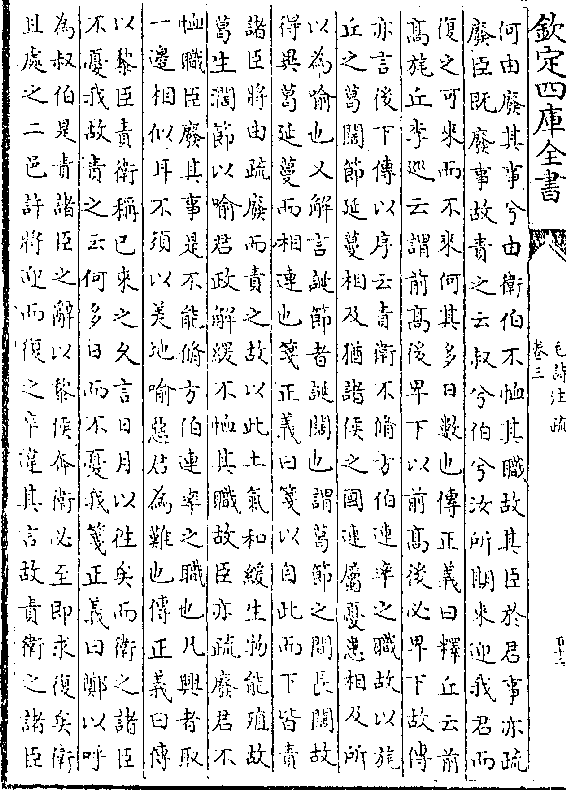 欽定四庫全書
毛詩注疏
卷三
何由廢其事兮由衛伯不恤其職故其臣於君事亦疏
廢臣既廢事故責之云叔兮伯兮汝所期來迎我君而
復之可來而不來何其多日數也傳正義曰釋丘云前
髙旄丘李廵云謂前髙後卑下以前髙後必卑下故傳
亦言後下傳以序云責衛不脩方伯連率之職故以旄
丘之葛闊節延蔓相及猶諸侯之國連屬憂患相及所
以為喻也又解言誕節者誕闊也謂葛節之間長闊故
得異葛延蔓而相連也箋正義曰箋以自此而下皆責
諸臣將由疏廢而責之故以此土氣和緩生物能殖故
葛生濶節以喻君政解緩不恤其職故臣亦疏廢君不
恤職臣廢其事是不能脩方伯連率之職也凡興者取
一邊相似耳不須以美地喻惡君為難也傳正義曰傳
以黎臣責衛稱已來之久言日月以往矣而衛之諸臣
不憂我故責之云何多日而不憂我箋正義曰鄭以呼
為叔伯是責諸臣之辭以黎侯奔衛必至即求復矣衛
且處之二邑許將迎而復之卒違其言故責衛之諸臣